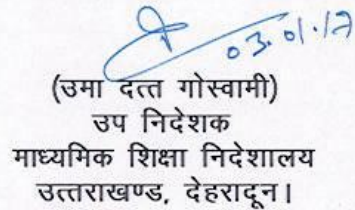 03.01.17
(उमा दत्त गोस्वामी)
उप निदेशक
माध्यमिक शिक्षा निदेशालय
उत्तराखण्ड, देहरादून।